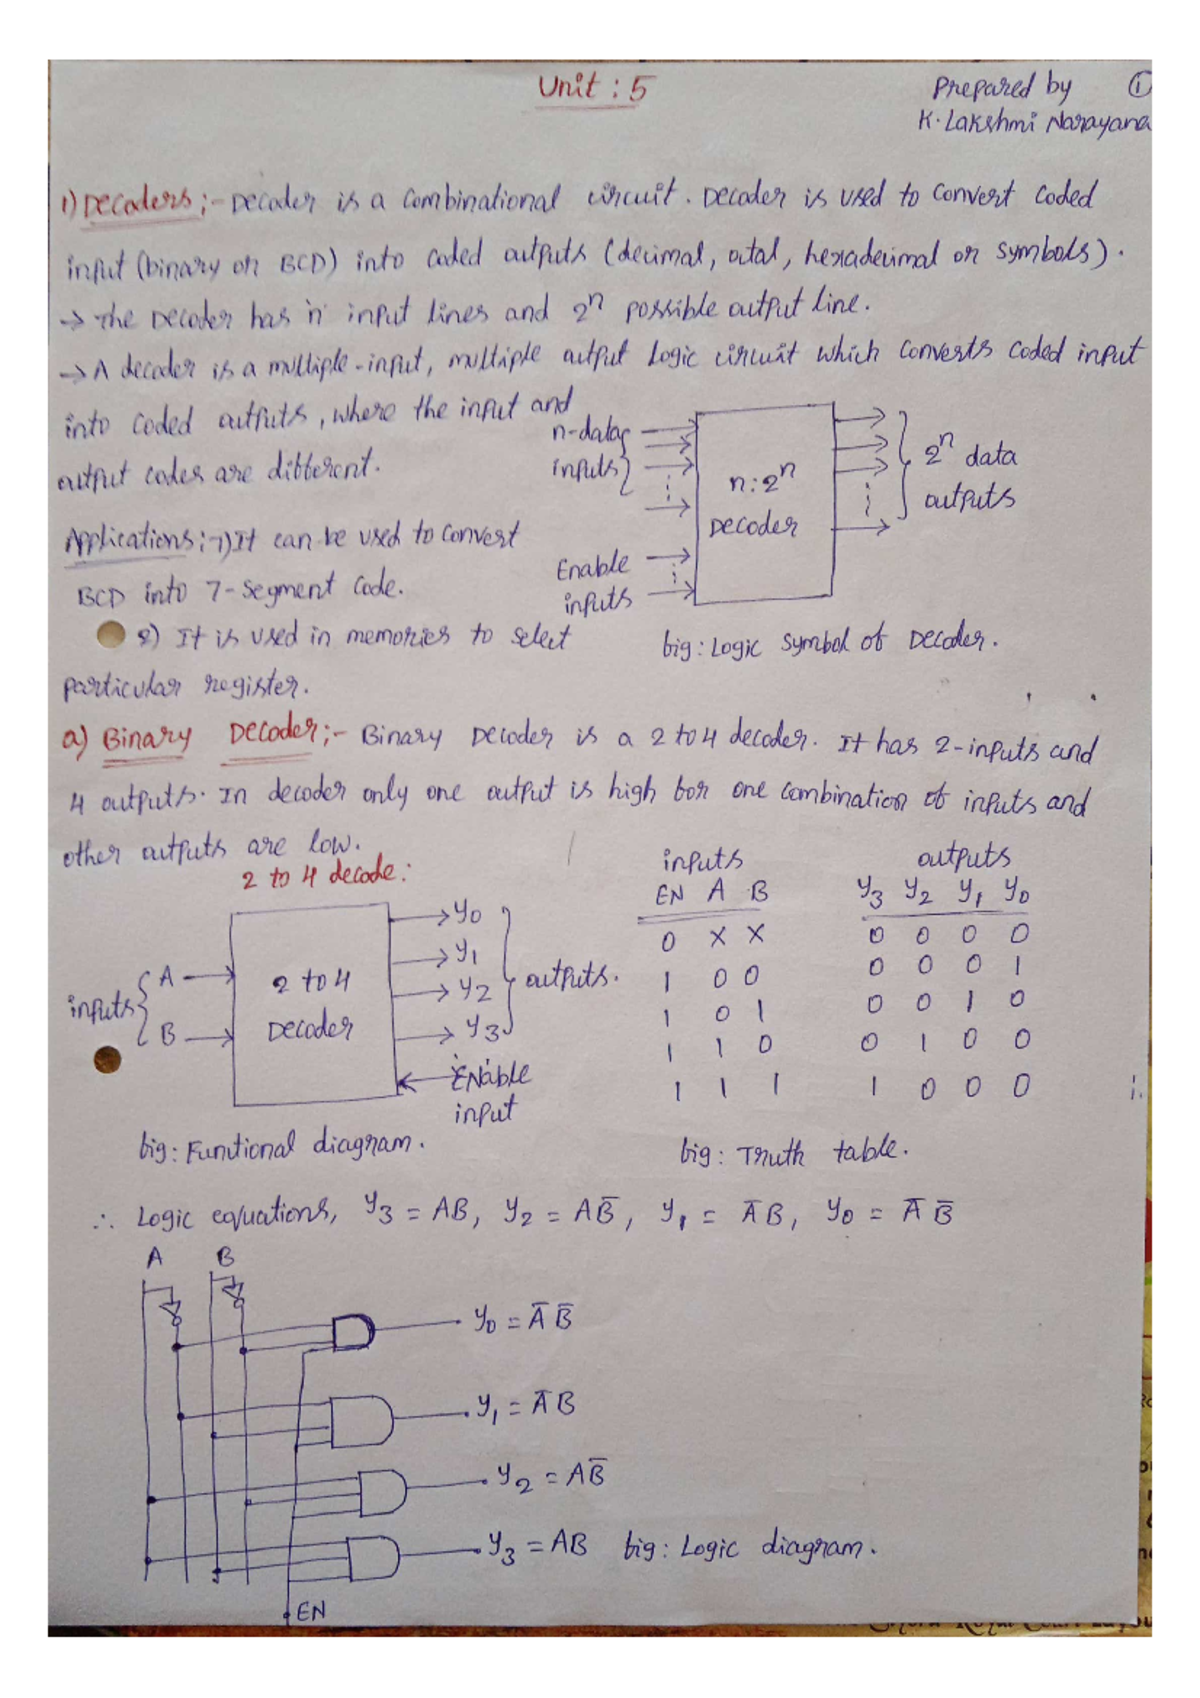 Unit : 5
Prepared by ①
K. Lakshmi Narayana
1) Decoders ;- Decoder is a Combinational circuit. Decoder is used to convert coded
input (binary or BCD) into coded outputs (decimal, octal, hexadecimal or symbols).
→ The Decoder has 'n' input lines and 2ⁿ possible output line.
→ A decoder is a multiple-input, multiple output Logic circuit which converts coded input
into coded outputs, where the input and
output codes are different.
n-data
inputs
n:2ⁿ
Decoder
2ⁿ data
outputs
Enable
inputs
fig: Logic symbol of Decoder.
Applications:-1) It can be used to convert
BCD into 7-Segment Code.
2) It is used in memories to select
particular register.
a) Binary Decoder;- Binary Decoder is a 2 to 4 decoder. It has 2-inputs and
4 outputs. In decoder only one output is high for one combination of inputs and
other outputs are low.
2 to 4 decode:
inputs
A
B
2 to 4
Decoder
Y0
Y1
Y2
Y3
outputs.
ENable
input
fig: Funtional diagram.
inputs outputs
EN A B Y3 Y2 Y1 Y0
0 X X 0 0 0 0
1 0 0 0 0 0 1
1 0 1 0 0 1 0
1 1 0 0 1 0 0
1 1 1 1 0 0 0
fig: Truth table.
∴ Logic equations, Y3 = AB, Y2 = AB̅, Y1 = A̅B, Y0 = A̅ B̅
A B
Y0 = A̅ B̅
Y1 = A̅ B
Y2 = AB̅
Y3 = AB fig: Logic diagram.
EN